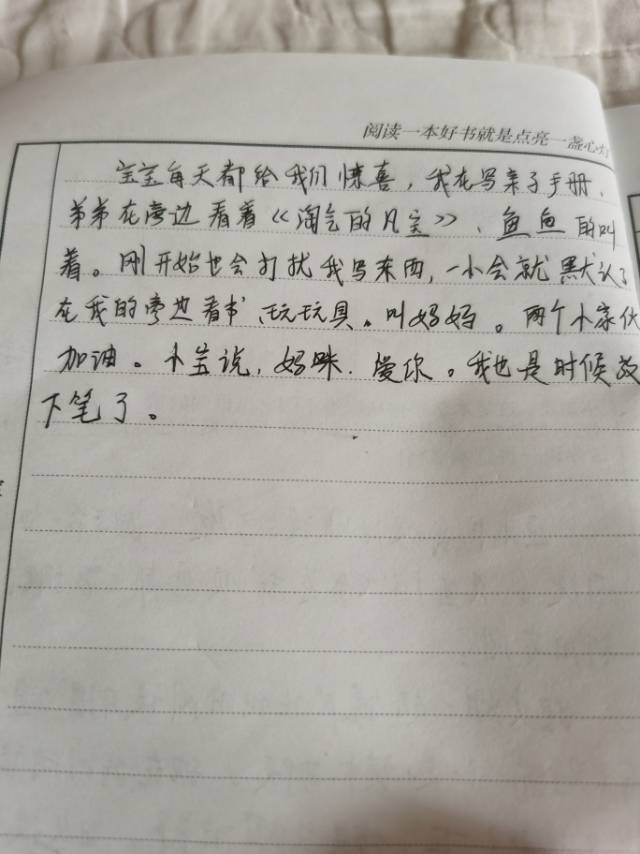 阅读一本好书就是点亮一盏心灯
宝宝每天都给我们惊喜，我在写亲子手册，
弟弟在旁边看着《淘气的凡宝》、鱼鱼的叫
着。刚开始也会打扰我写东西，一小会就默认了
在我的旁边看书、玩玩具。叫妈妈。两个小家伙
加油。卜宝说，妈咪．爱你。我也是时候放
下笔了。